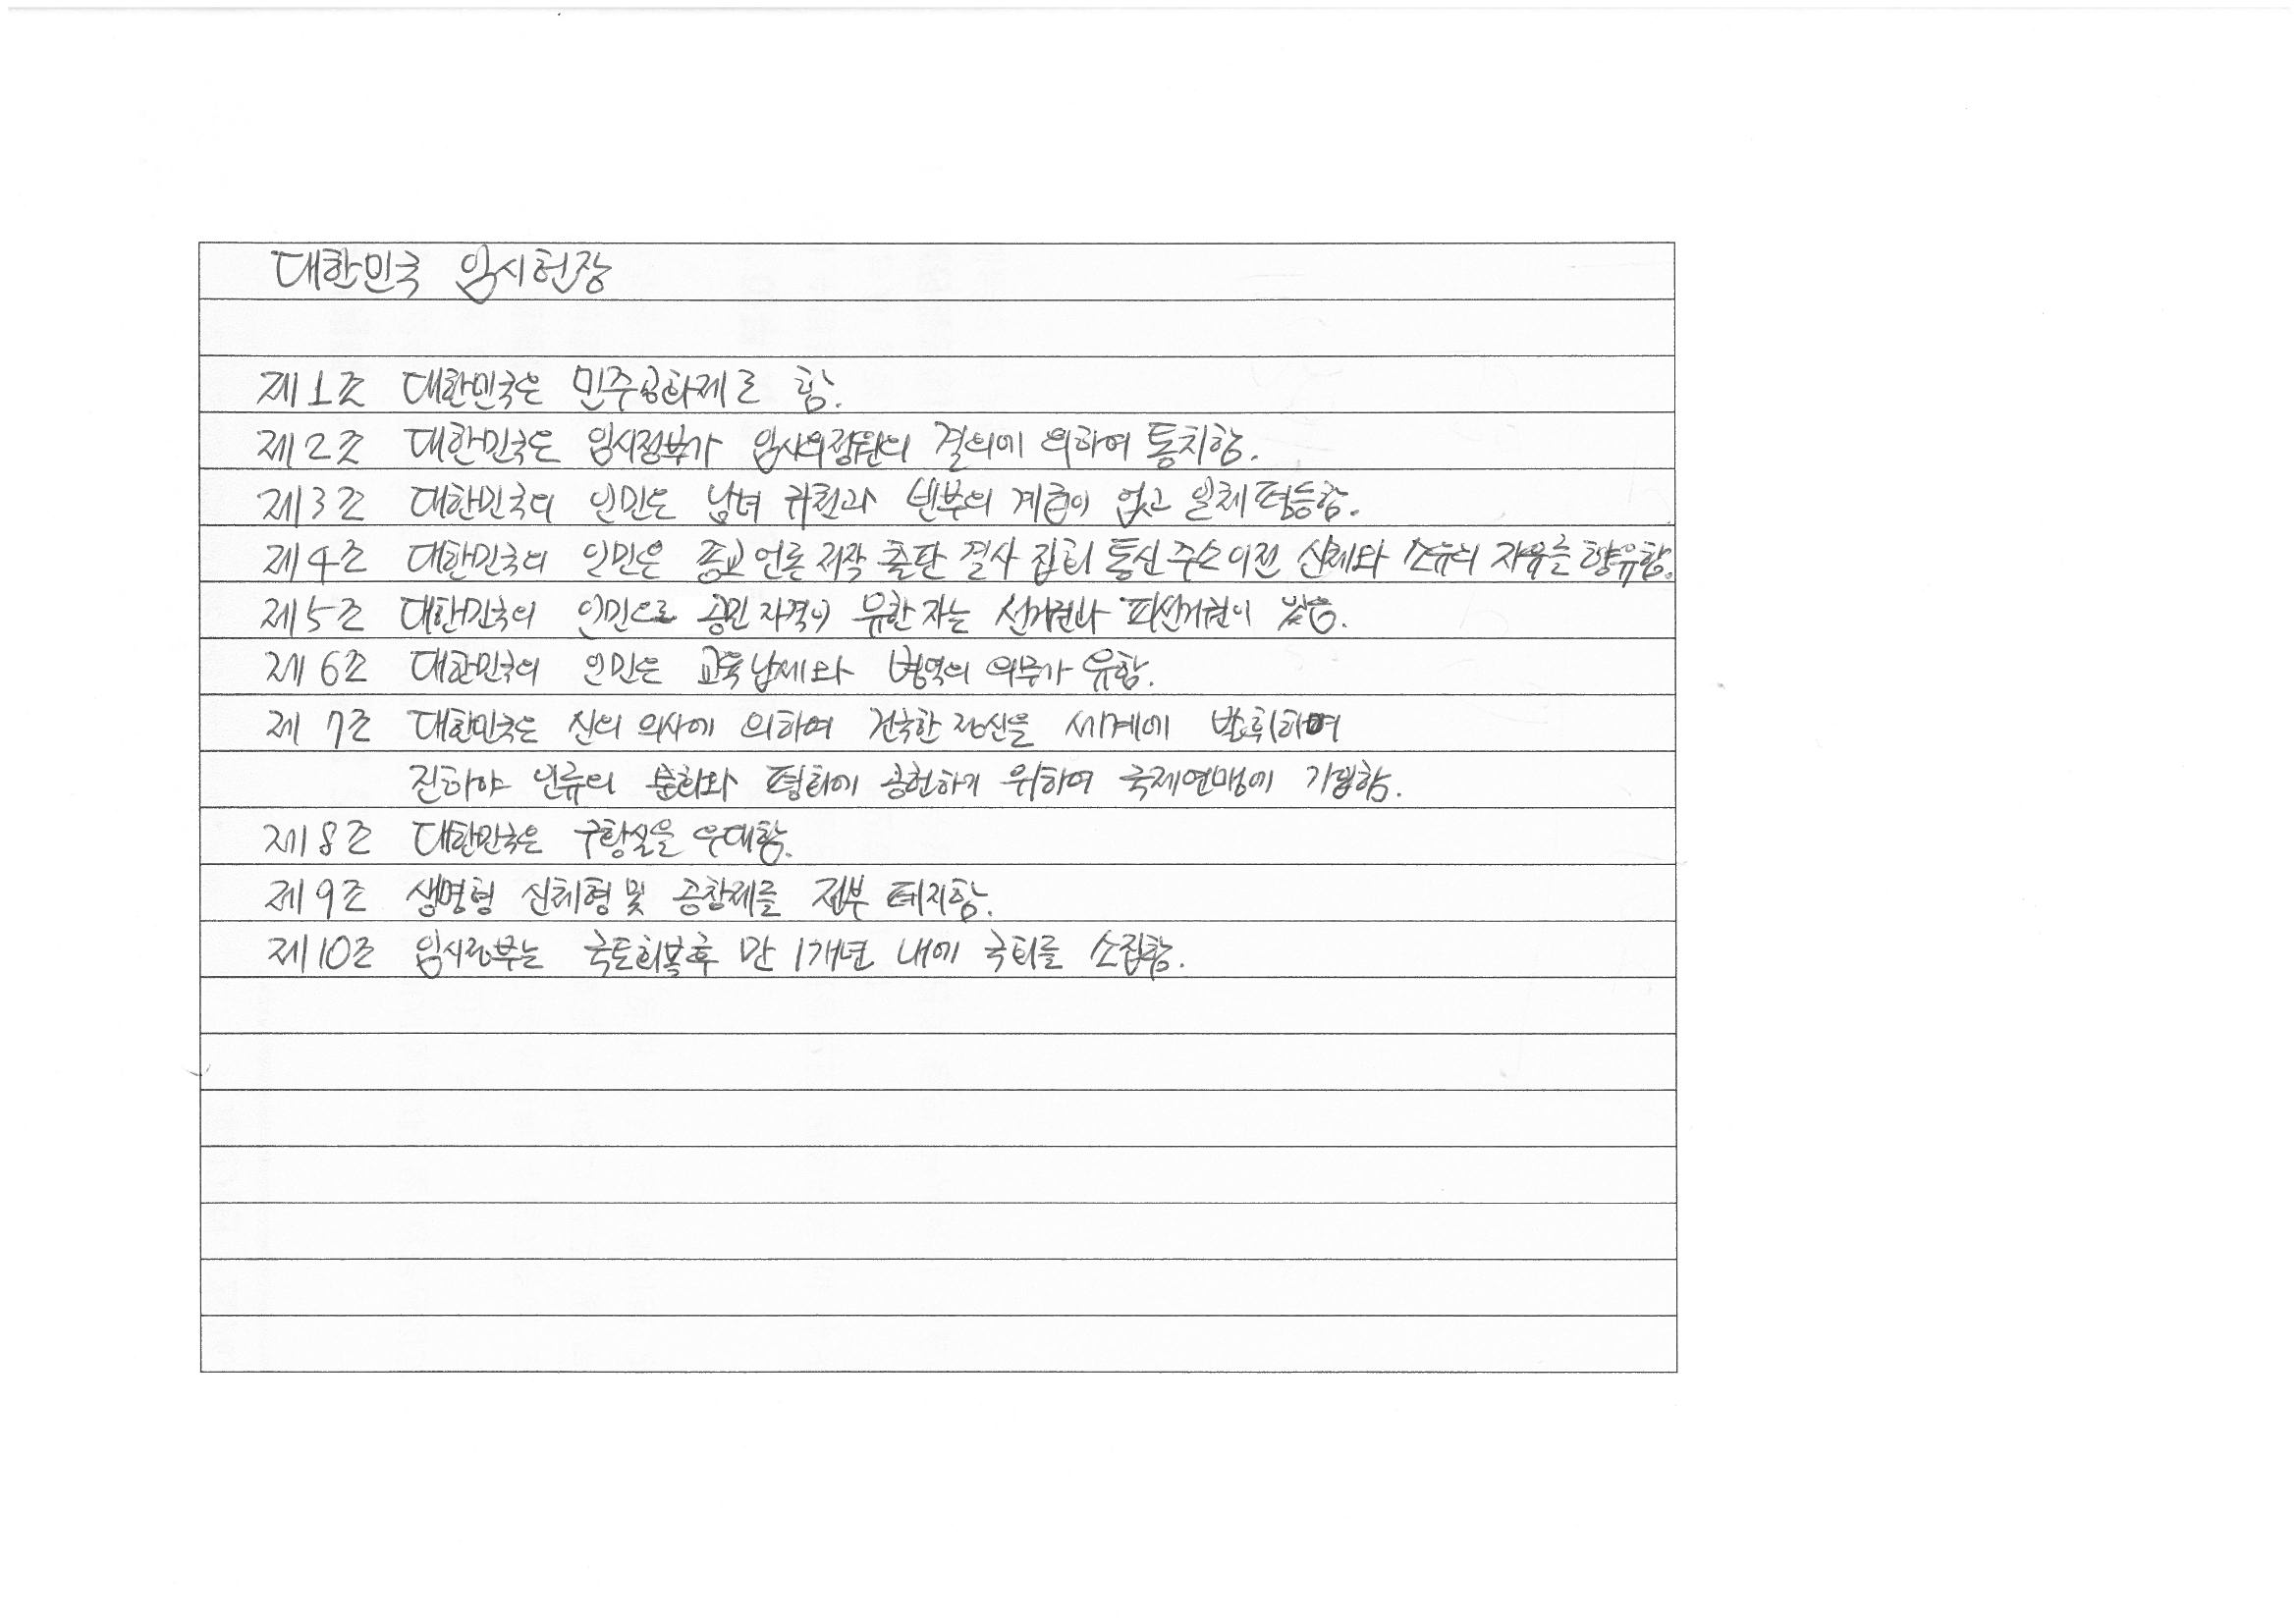 대한민국 임시헌장
제1조 대한민국은 민주공화제로 함.
제2조 대한민국은 임시정부가 임시의정원의 결의에 의하여 통치함.
제3조 대한민국의 인민은 남녀 귀천과 빈부의 계급이 없고 일체 평등함.
제4조 대한민국의 인민은 종교 언론 저작 출판 결사 집회 통신 주소 이전 신체와 소유의 자유를 향유함.
제5조 대한민국의 인민으로 공민 자격이 유한 자는 선거권과 피선거권이 있음.
제6조 대한민국의 인민은 교육 납세와 병역의 의무가 유함.
제7조 대한민국은 신의 의사에 의하여 건국한 정신을 세계에 발휘하며
진하야 인류의 문화와 평화에 공헌하기 위하여 국제연맹에 가입함.
제8조 대한민국은 구황실을 우대함.
제9조 생명형 신체형 및 공창제를 전부 폐지함.
제10조 임시정부는 국토회복후 만 1개년 내에 국회를 소집함.